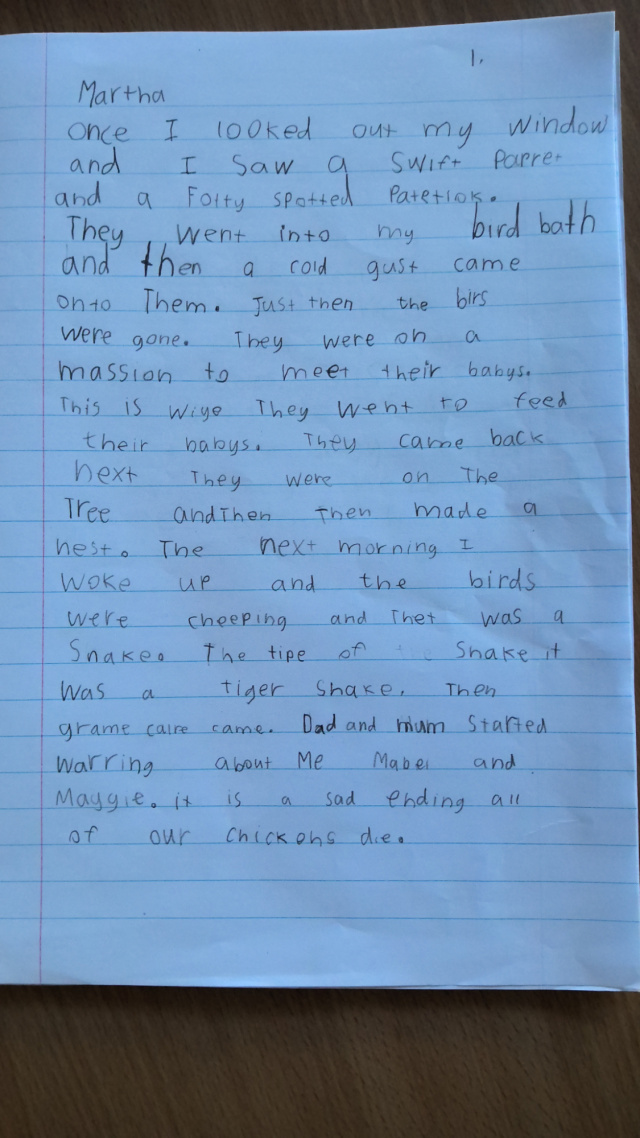 1.
Martha
once I looked out my window
and I saw a swift Parret
and a Forty spotted Patetlok.
They went into my bird bath
and then a cold gust came
onto Them. Just then the birs
were gone. They were on a
massion to meet their babys.
This is wiye They went to feed
their babys. They came back
next They were on The
Tree andThen then made a
nest. The next morning I
woke up and the birds
were cheeping and Thet was a
Snake. The tipe of Snake it
was a tiger snake. Then
grame caire came. Dad and mum Started
warring about Me Mabel and
Maggie. it is a sad ending all
of our chickons die.